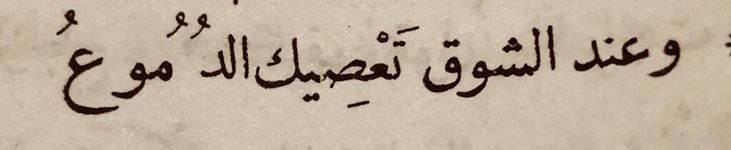 وعند الشوق تَعْصِيك الدُمُوعُ